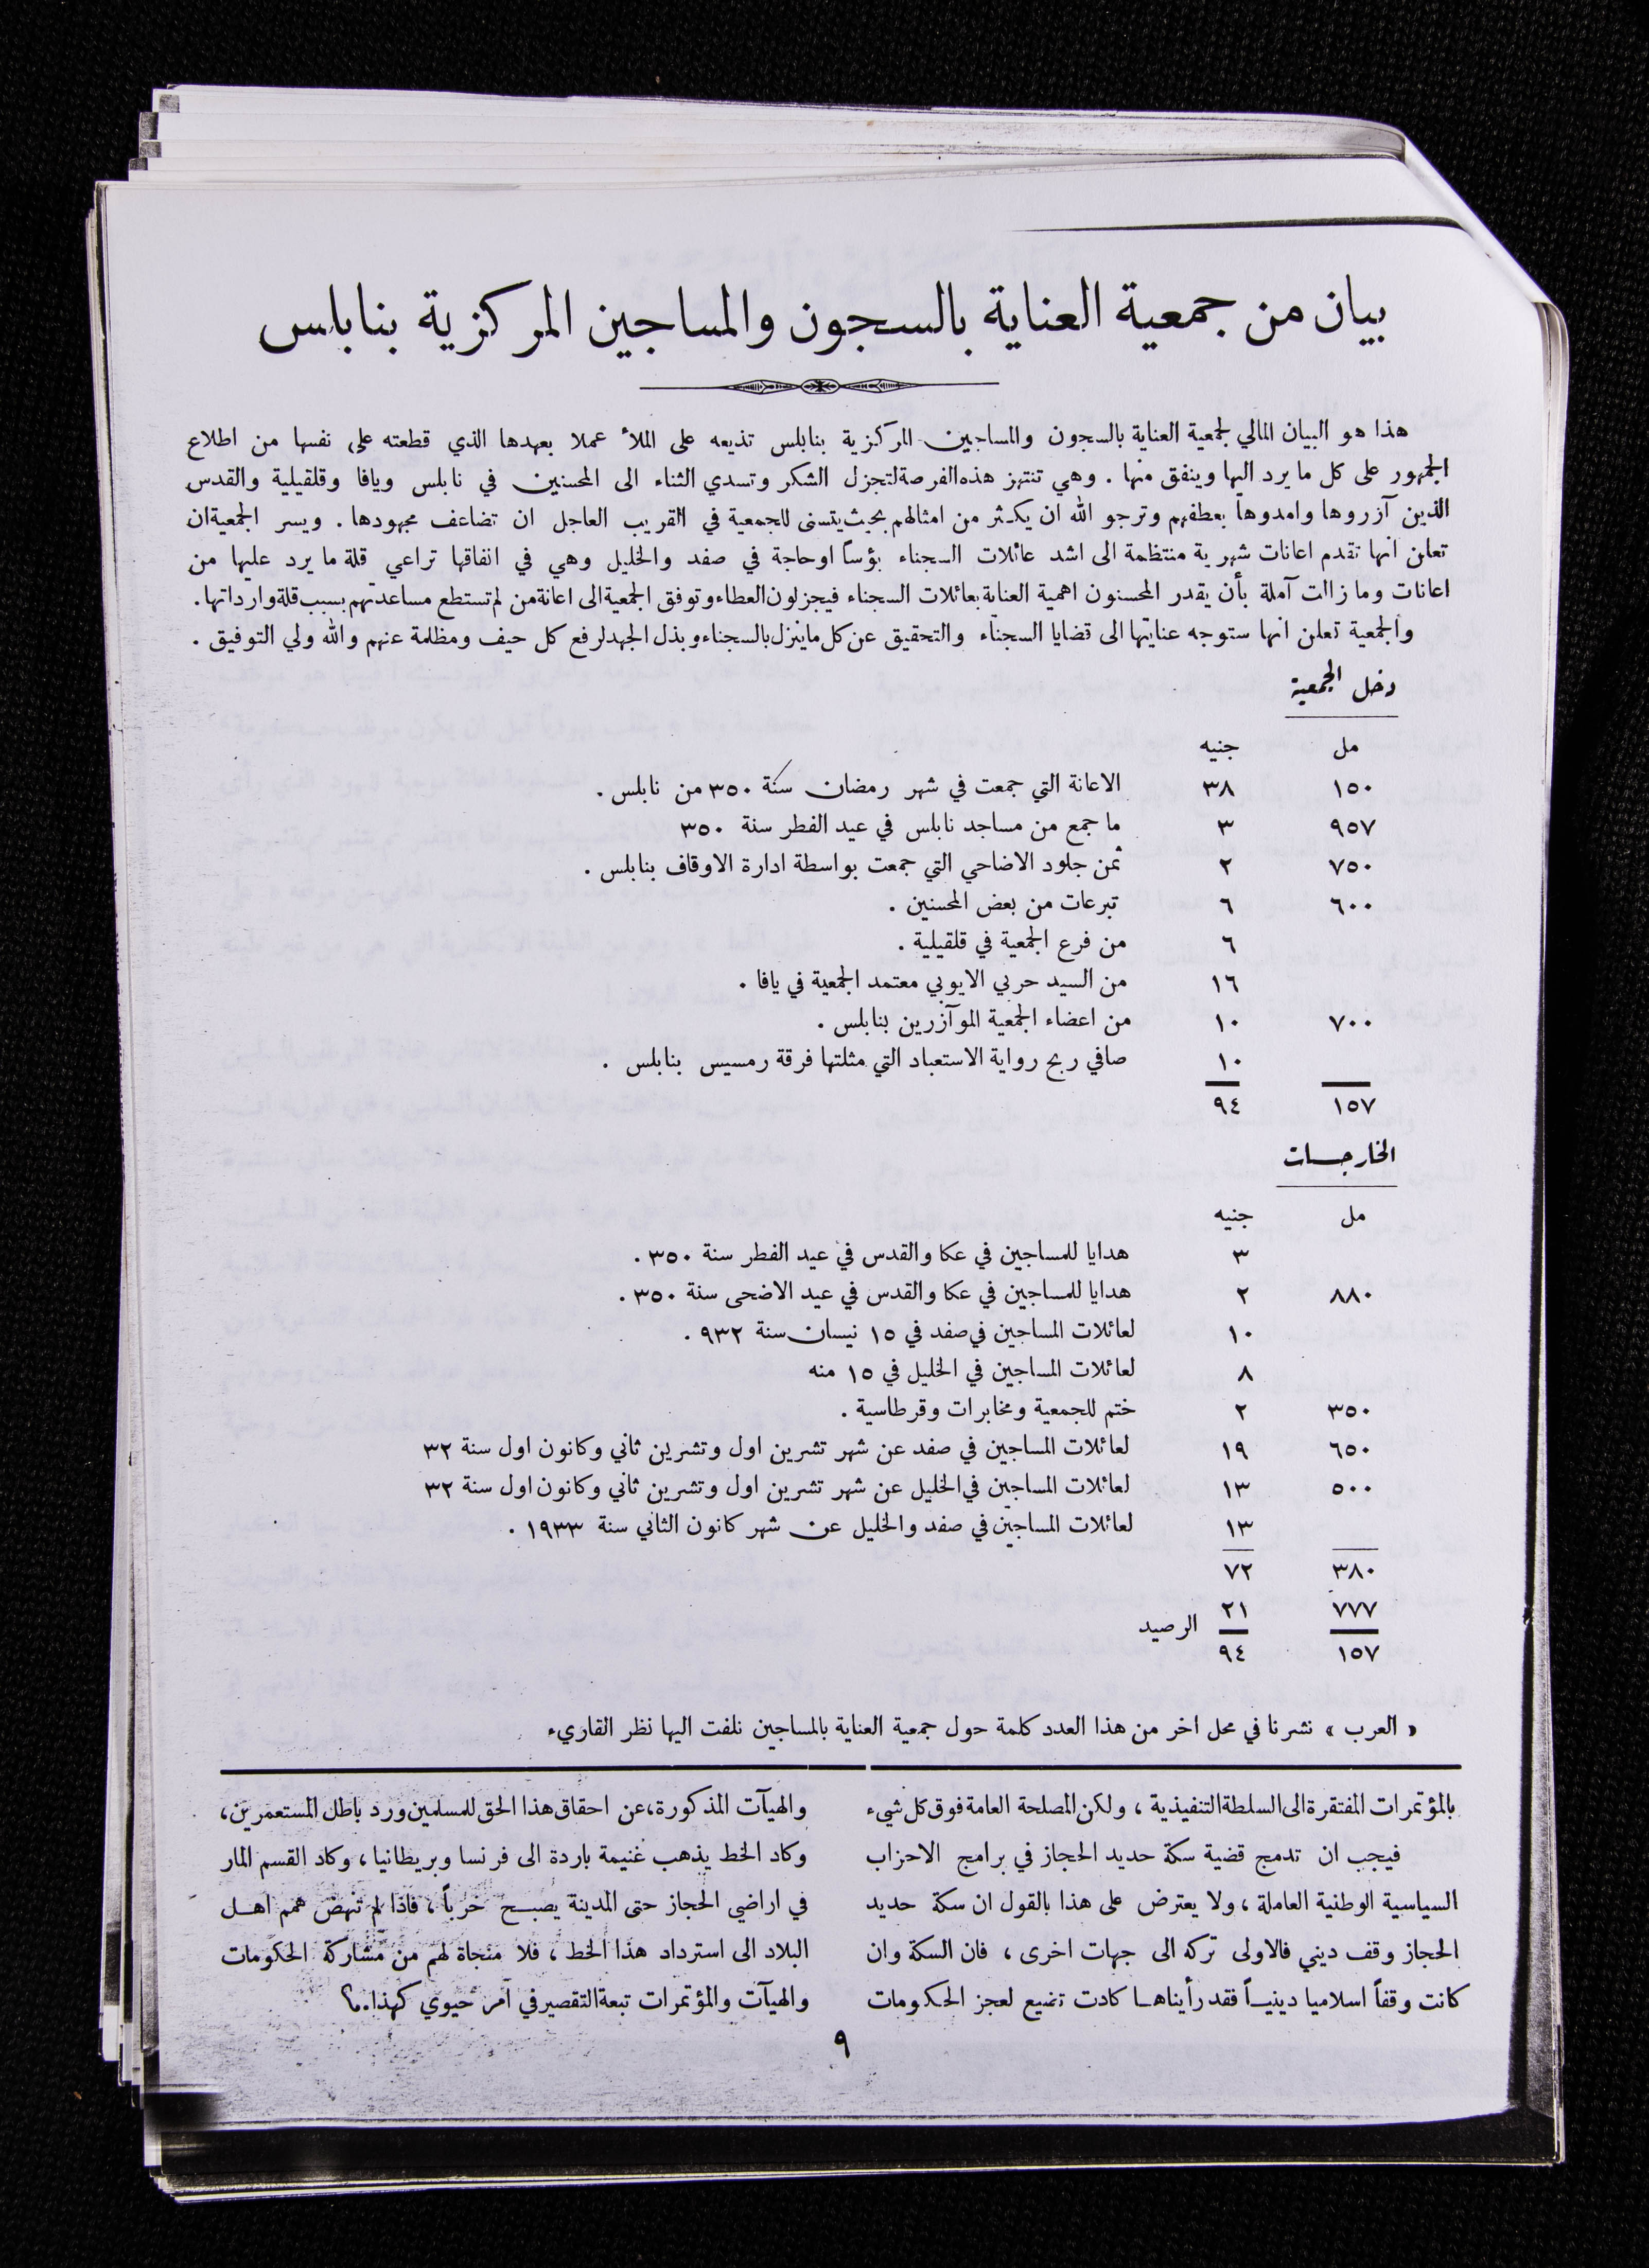 بيان من جمعية العناية بالسجون والمساجين المركزية بنابلس
هذا هو البيان المالي لجمعية العناية بالسجون والمساجين المركزية بنابلس تذيعه على الملأ عملا بعهدها الذي قطعته على نفسها من اطلاع
الجمهور على كل ما يرد اليها وينفق منها . وهي تنتهز هذه الفرصة لتجزل الشكر وتسدي الثناء الى المحسنين في نابلس ويافا وقلقيلية والقدس
الذين آزروها وامدوها بعطفهم وترجو الله ان يكثر من امثالهم بحيث يتسنى للجمعية في القريب العاجل ان تضاعف مجهودها . ويسر الجمعية ان
تعلن انها تقدم اعانات شهرية منتظمة الى اشد عائلات السجناء بؤساً او حاجة في صفد والخليل وهي في انفاقها تراعي قلة ما يرد عليها من
اعانات وما زالت آملة بأن يقدر المحسنون اهمية العناية بعائلات السجناء فيجزلون العطاء وتوفق الجمعية الى اعانة من لم تستطع مساعدتهم بسبب قلة وارداتها .
والجمعية تعلن انها ستوجه عنايتها الى قضايا السجناء والتحقيق عن كل ما ينزل بالسجناء وبذل الجهد لرفع كل حيف ومظلمة عنهم والله ولي التوفيق .
دخل الجمعية
مل جنيه
١٥٠ ٣٨ الاعانة التي جمعت في شهر رمضان سنة ٣٥٠ من نابلس .
٩٥٧ ٣ ما جمع من مساجد نابلس في عيد الفطر سنة ٣٥٠
٧٥٠ ٢ ثمن جلود الاضاحي التي جمعت بواسطة ادارة الاوقاف بنابلس .
٦٠٠ ٦ تبرعات من بعض المحسنين .
٦ من فرع الجمعية في قلقيلية .
١٦ من السيد حربي الايوبي معتمد الجمعية في يافا .
٧٠٠ ١٠ من اعضاء الجمعية الموآزرين بنابلس .
١٠ صافي ربح رواية الاستعباد التي مثلتها فرقة رمسيس بنابلس .
١٥٧ ٩٤
الخارجات
مل جنيه
٣ هدايا للمساجين في عكا والقدس في عيد الفطر سنة ٣٥٠ .
٨٨٠ ٢ هدايا للمساجين في عكا والقدس في عيد الاضحى سنة ٣٥٠ .
١٠ لعائلات المساجين في صفد في ١٥ نيسان سنة ٩٣٢ .
٨ لعائلات المساجين في الخليل في ١٥ منه
٣٥٠ ٢ ختم للجمعية ومخابرات وقرطاسية .
٦٥٠ ١٩ لعائلات المساجين في صفد عن شهر تشرين اول وتشرين ثاني وكانون اول سنة ٣٢
٥٠٠ ١٣ لعائلات المساجين في الخليل عن شهر تشرين اول وتشرين ثاني وكانون اول سنة ٣٢
١٣ لعائلات المساجين في صفد والخليل عن شهر كانون الثاني سنة ١٩٣٣ .
٣٨٠ ٧٢
٧٧٧ ٢١ الرصيد
١٥٧ ٩٤
« العرب » نشرنا في محل اخر من هذا العدد كلمة حول جمعية العناية بالمساجين نلفت اليها نظر القاريء
بالمؤتمرات المفتقرة الى السلطة التنفيذية ، ولكن المصلحة العامة فوق كل شيء
فيجب ان تدمج قضية سكة حديد الحجاز في برامج الاحزاب
السياسية الوطنية العاملة ، ولا يعترض على هذا بالقول ان سكة حديد
الحجاز وقف ديني فالاولى تركه الى جهات اخرى ، فان السكة وان
كانت وقفاً اسلاميا دينيـاً فقد رأيناهـا كادت تضيع لعجز الحكومات
والهيآت المذكورة، عن احقاق هذا الحق للمسلمين ورد باطل المستعمرين،
وكاد الخط يذهب غنيمة باردة الى فرنسا وبريطانيا ، وكاد القسم المار
في اراضي الحجاز حتى المدينة يصبـح خرباً ، فاذا لم تنهض همم اهـل
البلاد الى استرداد هذا الخط ، فلا منجاة لهم من مشاركة الحكومات
والهيآت والمؤتمرات تبعة التقصير في امر حيوي كهذا..؟
٩